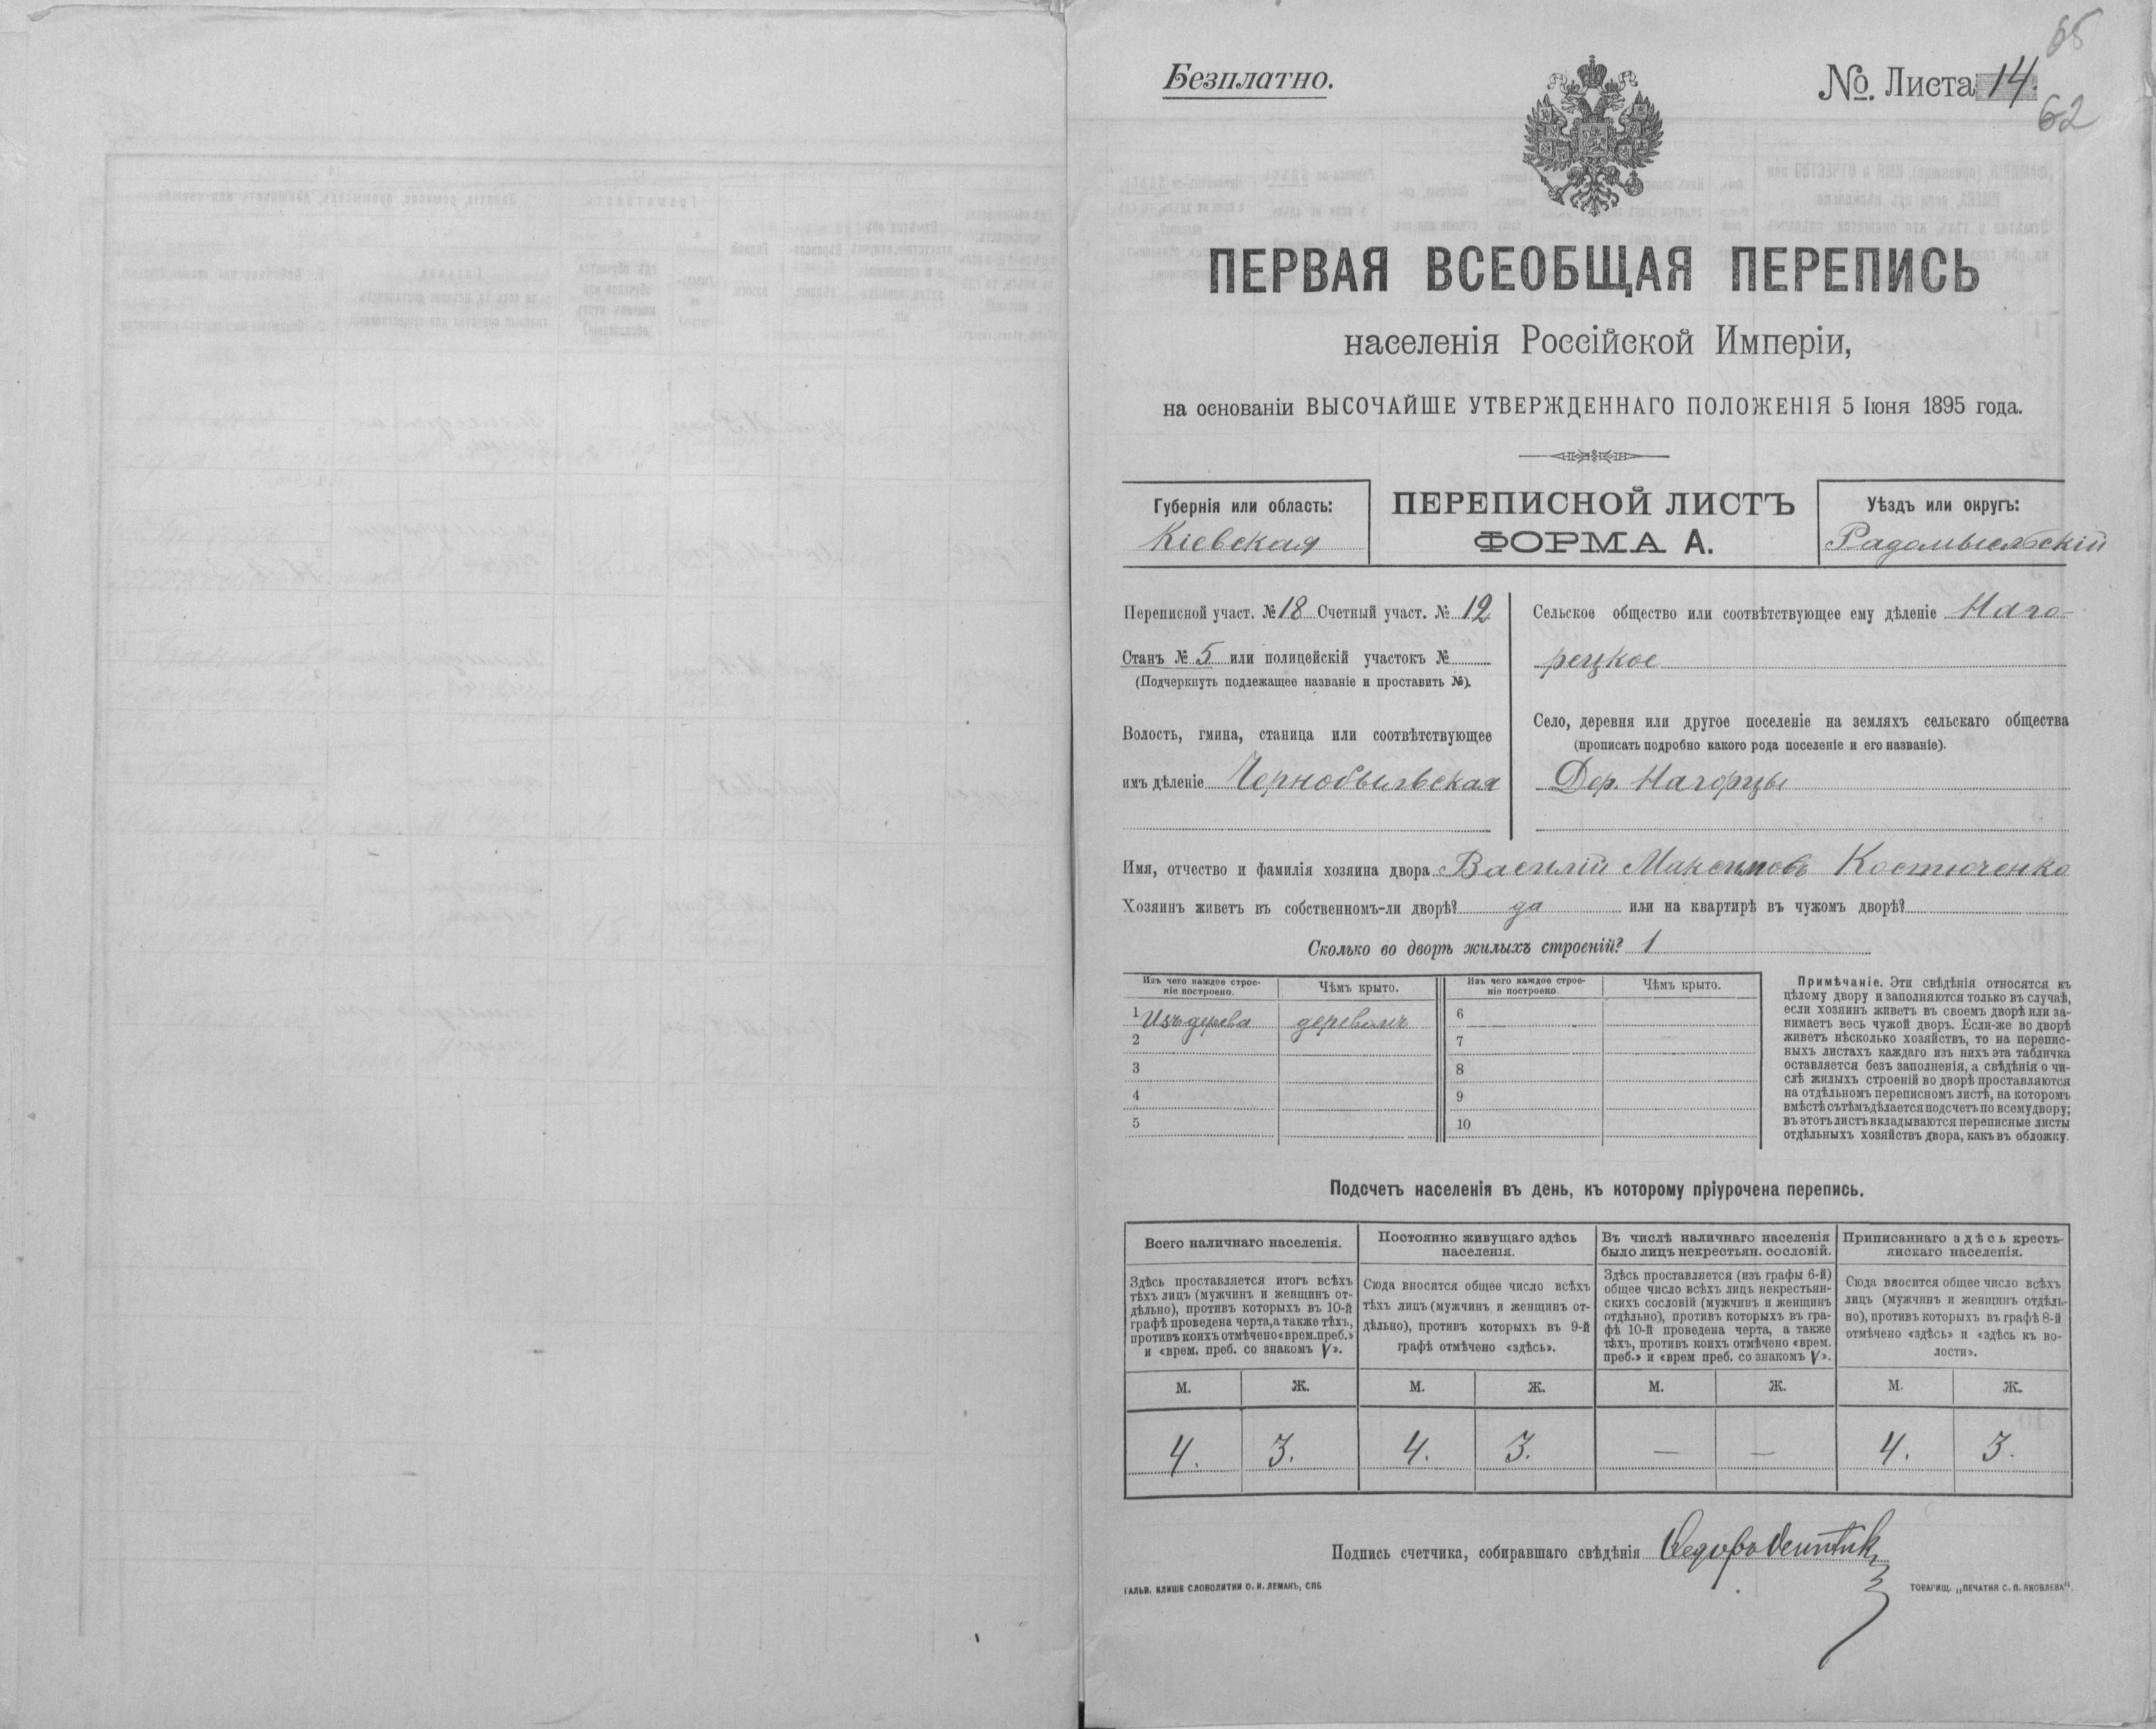 65
Безплатно.
№ Листа 14.
62
ПЕРВАЯ ВСЕОБЩАЯ ПЕРЕПИСЬ
населенія Россійской Имперіи,
на основаніи ВЫСОЧАЙШЕ УТВЕРЖДЕННАГО ПОЛОЖЕНІЯ 5 Іюня 1895 года.
Губернія или область:
Кіевская
ПЕРЕПИСНОЙ ЛИСТЪ
ФОРМА А.
Уѣздъ или округъ:
Радомысльскій
Переписной участ. № 18 Счетный участ. № 12
Станъ № 5 или полицейскій участокъ №
(Подчеркнуть подлежащее названіе и проставить №).
Волость, гмина, станица или соотвѣтствующее
имъ дѣленіе Чернобыльская
Сельское общество или соотвѣтствующее ему дѣленіе Наго-
рецкое
Село, деревня или другое поселеніе на земляхъ сельскаго общества
(прописать подробно какого рода поселеніе и его названіе).
Дер. Нагорцы
Имя, отчество и фамилія хозяина двора Василій Максимовъ Костюченко
Хозяинъ живетъ въ собственномъ-ли дворѣ? да или на квартирѣ въ чужомъ дворѣ?
Сколько во дворѣ жилыхъ строеній? 1
Изъ чего каждое строе-
ніе построено.
Чѣмъ крыто.
Изъ чего каждое строе-
ніе построено.
Чѣмъ крыто.
1 Изъ дерева деревомъ 6
2 7
3 8
4 9
5 10
Примѣчаніе. Эти свѣдѣнія относятся къ
цѣлому двору и заполняются только въ случаѣ,
если хозяинъ живетъ въ своемъ дворѣ или за-
нимаетъ весь чужой дворъ. Если-же во дворѣ
живетъ нѣсколько хозяйствъ, то на перепис-
ныхъ листахъ каждаго изъ нихъ эта табличка
оставляется безъ заполненія, а свѣдѣнія о чи-
слѣ жилыхъ строеній во дворѣ проставляются
на отдѣльномъ переписномъ листѣ, на которомъ
вмѣстѣ съ тѣмъ дѣлается подсчетъ по всему двору;
въ этотъ листъ вкладываются переписные листы
отдѣльныхъ хозяйствъ двора, какъ въ обложку.
Подсчетъ населенія въ день, къ которому пріурочена перепись.
Всего наличнаго населенія.
Здѣсь проставляется итогъ всѣхъ
тѣхъ лицъ (мужчинъ и женщинъ от-
дѣльно), противъ которыхъ въ 10-й
графѣ проведена черта, а также тѣхъ,
противъ коихъ отмѣчено «врем. преб.»
и «врем. преб. со знакомъ V».
Постоянно живущаго здѣсь
населенія.
Сюда вносится общее число всѣхъ
тѣхъ лицъ (мужчинъ и женщинъ от-
дѣльно), противъ которыхъ въ 9-й
графѣ отмѣчено «здѣсь».
Въ числѣ наличнаго населенія
было лицъ некрестьян. сословій.
Здѣсь проставляется (изъ графы 6-й)
общее число всѣхъ лицъ некрестьян-
скихъ сословій (мужчинъ и женщинъ
отдѣльно), противъ которыхъ въ гра-
фѣ 10-й проведена черта, а также
тѣхъ, противъ коихъ отмѣчено «врем.
преб.» и «врем преб. со знакомъ V».
Приписаннаго здѣсь кресть-
янскаго населенія.
Сюда вносится общее число всѣхъ
лицъ (мужчинъ и женщинъ отдѣль-
но), противъ которыхъ въ графѣ 8-й
отмѣчено «здѣсь» и «здѣсь къ во-
лости».
М. Ж. М. Ж. М. Ж. М. Ж.
4. 3. 4. 3. — — 4. 3.
Подпись счетчика, собиравшаго свѣдѣнія
ГАЛЬВ. КЛИШЕ СЛОВОЛИТНИ О. И. ЛЕМАНЪ, СПБ
ТОВАРИЩ. „ПЕЧАТНЯ С. П. ЯКОВЛЕВА".